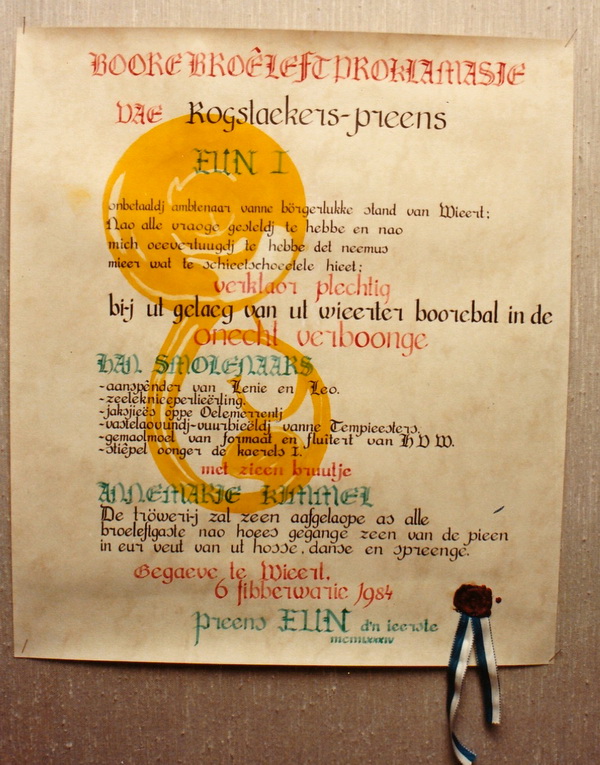 BOOREBROÊLEFTPROKLAMASIE
VAE Rogstaekers-preens
EUN I
onbetaaldj ambtenaar vanne börgerlukke stand van Wieert:
Nao alle vraoge gesteldj te hebbe en nao
mich oeevertuugdj te hebbe det neemus
mieer wat te schieetschoeetele hieet:
verklaor plechtig
bi-j ut gelaeg van ut wieerter boorebal in de
onecht verboonge
HAN SMOLENAARS
-aanspênder van Lenie en Leo.
-zeelekniceperlieërling.
-jaksjieës öppe Oelemerrentj
-vastelaovundj-vuurbieëldj vanne Tempieesters.
-gemaolmoel van formaat en fluitert van H V W.
-Stiêpel oonger de kaerels I.
met zieen bruutje
ANNEMARIE KIMMEL
De tröweri-j zal zeen aafgelaope as alle
broeleftgaste nao hoees gegange zeen van de pieen
in eur veut van ut hosse, danse en spreenge.
Gegaeve te Wieert,
6 fibberwarie 1984
preens EUN d'n ieerste